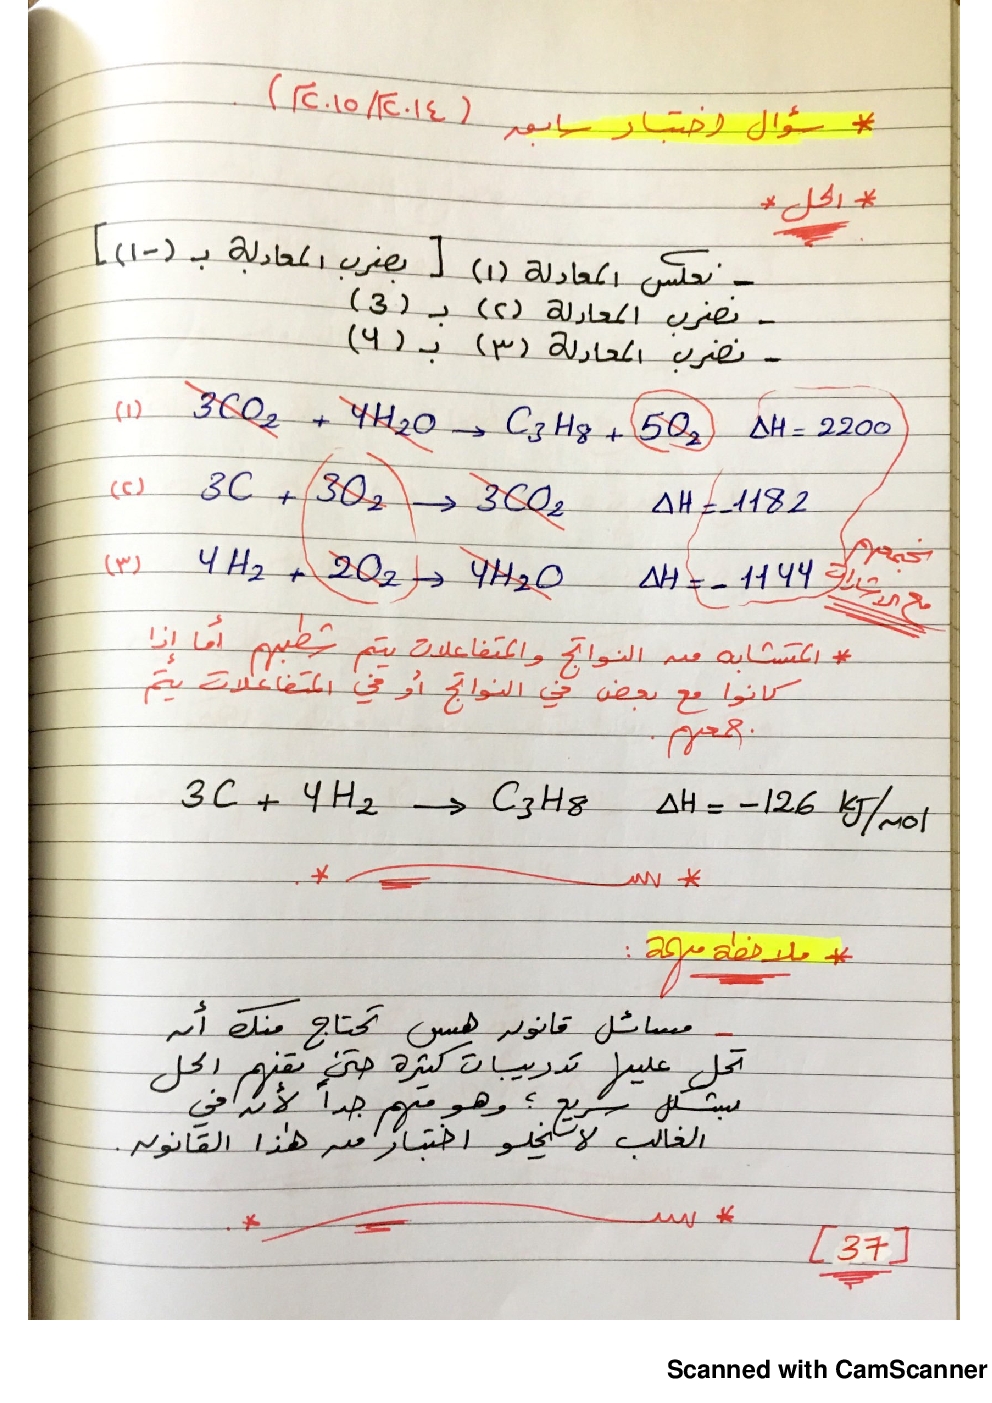 * سؤال اختبار سابق (٢٠١٤/٢٠١٥م)
* الحل *
- نعكس المعادلة (١) [بضرب المعادلة بـ (-١)]
- نضرب المعادلة (٢) بـ (3)
- نضرب المعادلة (٣) بـ (4)
(١) 3CO2 + 4H2O → C3H8 + 5O2 ΔH = 2200
(٢) 3C + 3O2 → 3CO2 ΔH = -1182
(٣) 4H2 + 2O2 → 4H2O ΔH = -1144
نجمعهم
مع الإشارات
* المتشابه من النواتج والمتفاعلات يتم شطبهم أما إذا
كانوا مع بعض في النواتج أو في المتفاعلات يتم
جمعهم.
3C + 4H2 → C3H8 ΔH = -126 KJ/mol
* ملاحظة مهمة :
- مسائل قانون هس تحتاج منك أن
تحل عليها تدريبات كثيرة حتى تفهم الحل
بشكل سريع ؛ وهو مهم جداً لأنه في
الغالب لا يخلو اختبار من هذا القانون.
[37]
Scanned with CamScanner